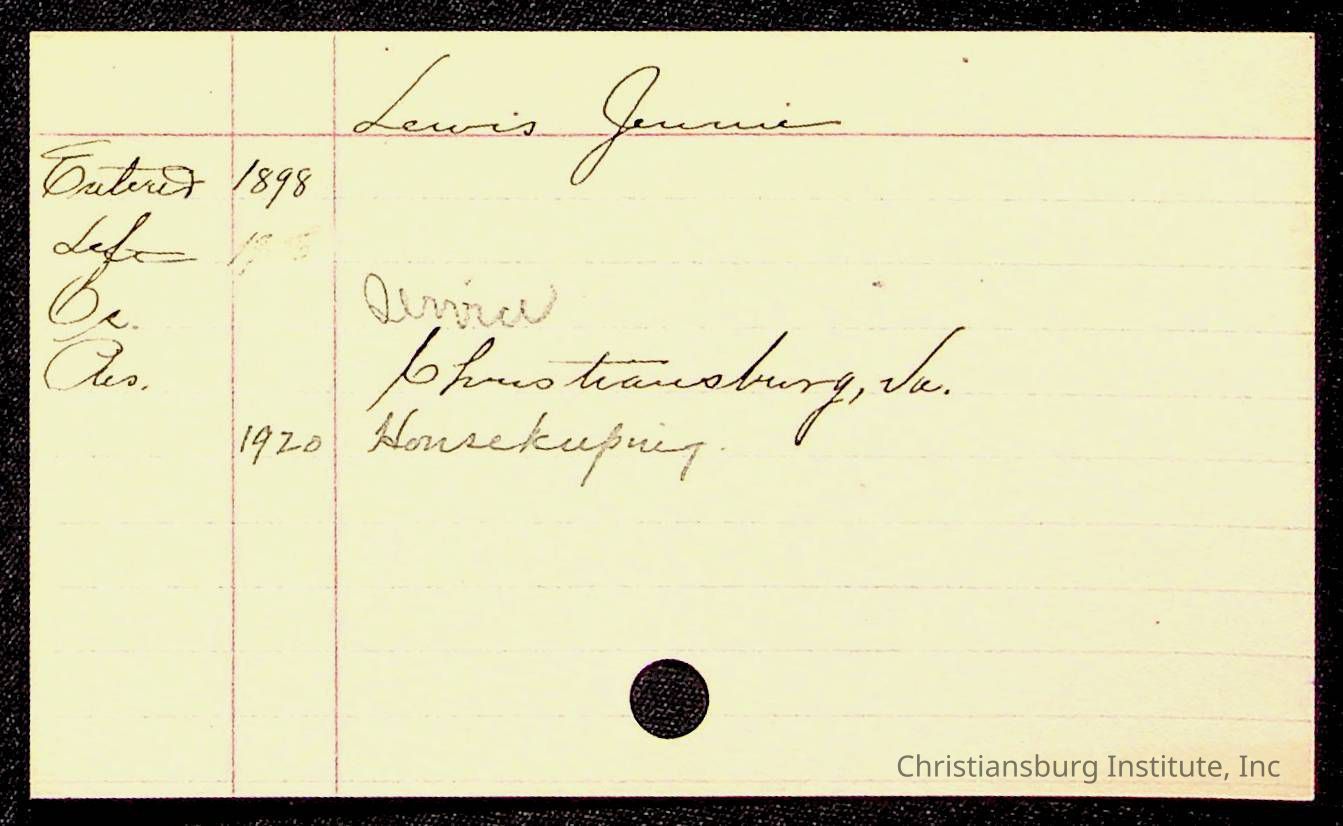 Lewis Jennie
Entered 1898
Left
Oc. Service
Res. Christiansburg, Va.
1920 Housekeeping.
Christiansburg Institute, Inc